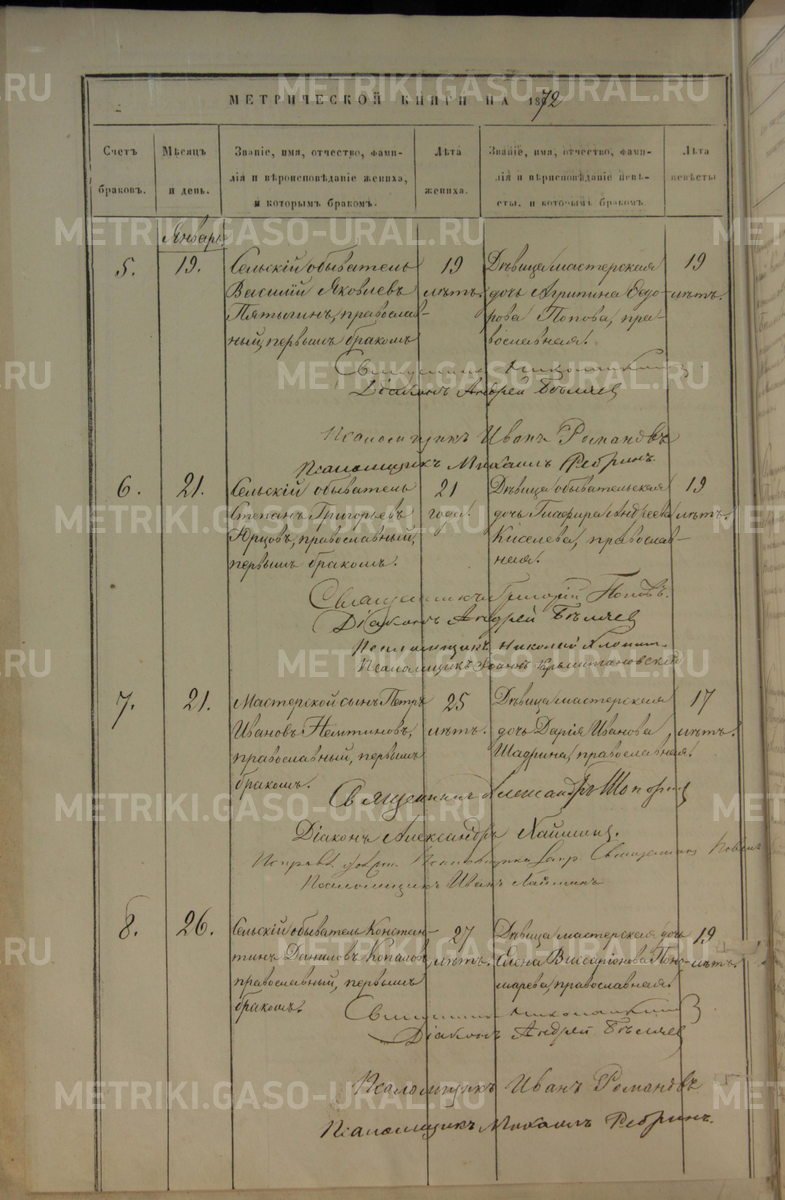 МЕТРИЧЕСКОЙ КНИГИ НА 1872
Счетъ браковъ.
Мѣсяцъ и день.
Званіе, имя, отчество, фами-
лія и вѣроисповѣданіе жениха,
и которымъ бракомъ.
Лѣта жениха.
Званіе, имя, отчество, фами-
лія и вѣриисповѣданіе невѣ-
сты, и которымъ бракомъ.
Лѣта невѣсты
Январь
5.
19.
Сельскій обыватель
Василій Яковлевъ
Пятыгинъ, православ-
ный, первымъ бракомъ
19
лѣтъ.
Дѣвица мастерская
дочь Агрипина Ѳедо-
рова Попова, пра-
вославная.
19
лѣтъ.
Діаконъ Андрей Бѣляев
Псаломщикъ Иванъ Романовъ
Псаломщикъ Михаилъ Ребринъ
6.
21.
Сельскій обыватель
Степанъ Григорьевъ
Юрцовъ, православный,
первымъ бракомъ.
21
года.
Дѣвица обывательская
дочь Глафира Андреева
Киселева, православ-
ная.
19
лѣтъ.
Священникъ Григорій Поповъ.
Діаконъ Андрей Бѣляев
Псаломщикъ Николай
Псаломщикъ Іоаннъ
7.
21.
Мастерской сынъ Петръ
Ивановъ
православный, первымъ
бракомъ.
25
лѣтъ.
Дѣвица мастерская
дочь Дарія Иванова
Шадрина, православная.
17
лѣтъ.
Священникъ Александръ
Діаконъ Александръ
Псаломщикъ Иванъ
8.
26.
Сельскій обыватель Констан-
тинъ Даниловъ Копаловъ,
православный, первымъ
бракомъ.
27
лѣтъ.
Дѣвица мастерская дочь
Елена Виссаріонова Поно-
марева, православная.
19
лѣтъ.
Діаконъ Андрей Бѣляев
Псаломщикъ Иванъ Романовъ
Псаломщикъ Михаилъ Ребринъ.
METRIKI.GASO-URAL.RU